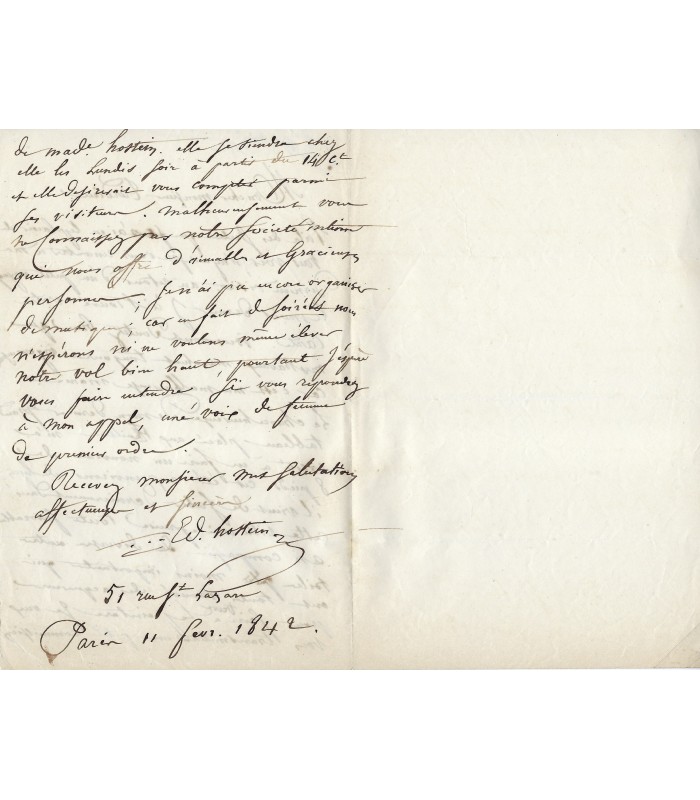 de mad.e hostein. elle se tiendra chez
elle les Lundis soir à partir du 14 Ct
et elle desirerait vous compter parmi
ses visiteurs. malheureusement vous
ne Connaissez pas notre Société intime
qui nous offre d'aimables et Gracieuses
personnes ; Je n'ai pu encore organiser
de musique ; car en fait de soirées nous
n'espérons ni ne voulons même élever
notre vol bien haut, pourtant J'espère
vous faire entendre si vous repondez
à mon appel, une voix de femme
de premier ordre.
Recevez monsieur mes Salutations
affectueuses et sincères
Ed. hostein
51 rue St. Lazare
Paris 11 fevr. 1842.